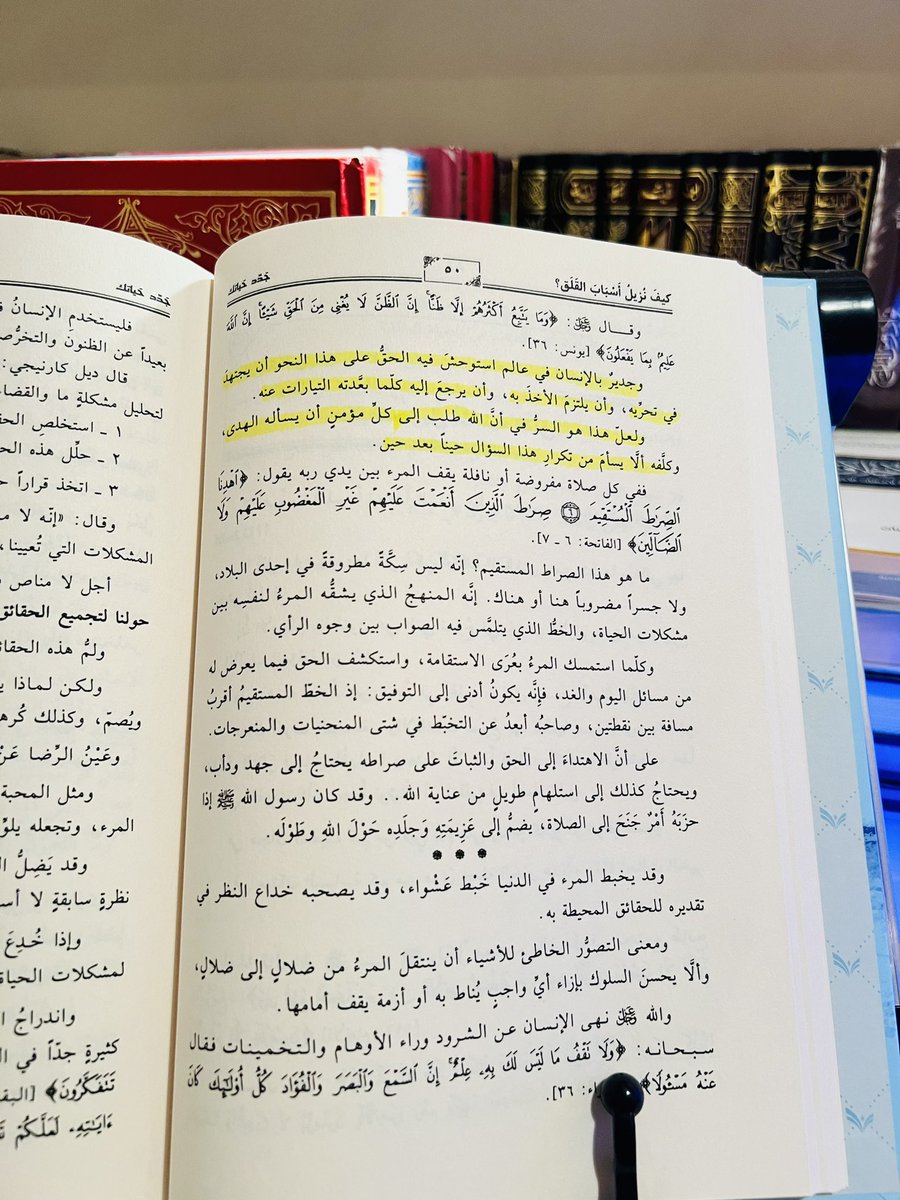 كيفَ نُزيلُ أسْبَابَ القَلَق؟
٥٠
جَدّد حَيَاتك
وقـال ﷻ: ﴿وَمَا يَتَّبِعُ أَكْثَرُهُمْ إِلَّا ظَنًّا إِنَّ الظَّنَّ لَا يُغْنِي مِنَ الْحَقِّ شَيْئًا إِنَّ اللَّهَ
عَلِيمٌ بِمَا يَفْعَلُونَ﴾ [يونس: ٣٦].
وجديرٌ بالإنسان في عالم استوحشَ فيه الحقُّ على هذا النحو أن يجتهدَ
في تحرِّيه، وأن يلتزمَ الأخذ به، وأن يرجعَ إليه كلّما بعَّدته التيارات عنه.
ولعلّ هذا هو السرُّ في أنَّ الله طلب إلى كلِّ مؤمنٍ أن يسأله الهدى،
وكلَّفه ألَّا يسأمَ من تكرارِ هذا السؤال حيناً بعد حين.
ففي كل صلاة مفروضة أو نافلة يقف المرء بين يدي ربه يقول: ﴿اهْدِنَا
الصِّرَاطَ الْمُسْتَقِيمَ ۝٦ صِرَاطَ الَّذِينَ أَنْعَمْتَ عَلَيْهِمْ غَيْرِ الْمَغْضُوبِ عَلَيْهِمْ وَلَا
الضَّالِّينَ﴾ [الفاتحة: ٦ ـ ٧].
ما هو هذا الصراط المستقيم؟ إنّه ليس سِكَّةً مطروقةً في إحدى البلاد،
ولا جسراً مضروباً هنا أو هناك. إنَّه المنهجُ الذي يشقُّه المرءُ لنفسِه بين
مشكلات الحياة، والخطُّ الذي يتلمَّس فيه الصواب بين وجوه الرأي.
وكلّما استمسك المرءُ بعُرَى الاستقامة، واستكشف الحق فيما يعرض له
من مسائل اليوم والغد، فإنَّه يكونُ أدنى إلى التوفيق: إذ الخطّ المستقيمُ أقربُ
مسافة بين نقطتين، وصاحبُه أبعدُ عن التخبّط في شتى المنحنيات والمنعرجات.
على أنَّ الاهتداءَ إلى الحق والثباتَ على صراطه يحتاجُ إلى جهد ودأب،
ويحتاجُ كذلك إلى استلهامٍ طويلٍ من عناية الله.. وقد كان رسول الله ﷺ إذا
حزَبَهُ أمْرٌ جَنَحَ إلى الصلاة، يضمُّ إلى عَزِيمَتِهِ وَجلَدِه حَوْلَ اللهِ وطَوْلَه.
* * *
وقد يخبط المرء في الدنيا خَبْط عَشْواء، وقد يصحبه خداع النظر في
تقديره للحقائق المحيطة به.
ومعنى التصوُّر الخاطئ للأشياء أن ينتقلَ المرءُ من ضلالٍ إلى ضلالٍ،
وألَّا يحسنَ السلوك بإزاء أيِّ واجبٍ يُناط به أو أزمة يقف أمامها.
والله ﷻ نهى الإنسان عـن الشرود وراء الأوهام والتخمينات فقال
سبحانه: ﴿وَلَا تَقْفُ مَا لَيْسَ لَكَ بِهِ عِلْمٌ إِنَّ السَّمْعَ وَالْبَصَرَ وَالْفُؤَادَ كُلُّ أُولَٰئِكَ كَانَ
عَنْهُ مَسْئُولًا﴾ ٣٦].
جَدّد حَيَاتك
فليستخدمِ الإنسانُ
بعيداً عن الظنون
قال ديل كارنيجي:
لتحليل مشكلةٍ ما
١ ـ استخلصِ
٢ ـ حلِّل هذه
٣ ـ اتخذ قراراً
وقال: «إنّه لا
المشكلات التي تُعيينا،
أجل لا مناص
حولنا لتجميع الحقائق
ولمُّ هذه
ولكن لماذا
ويُصمّ، وكذلك
وعَيْنُ الرِّضا
ومثل المحبة
المرء، وتجعله
وقد يَضِلُّ
نظرةٍ سابقةٍ لا
وإذا خُدِعَ
لمشكلات
واندراجُ
كثيرةٍ جدّاً في
تَتَفَكَّرُونَ﴾
ءَايَاتِهِ لَعَلَّكُمْ